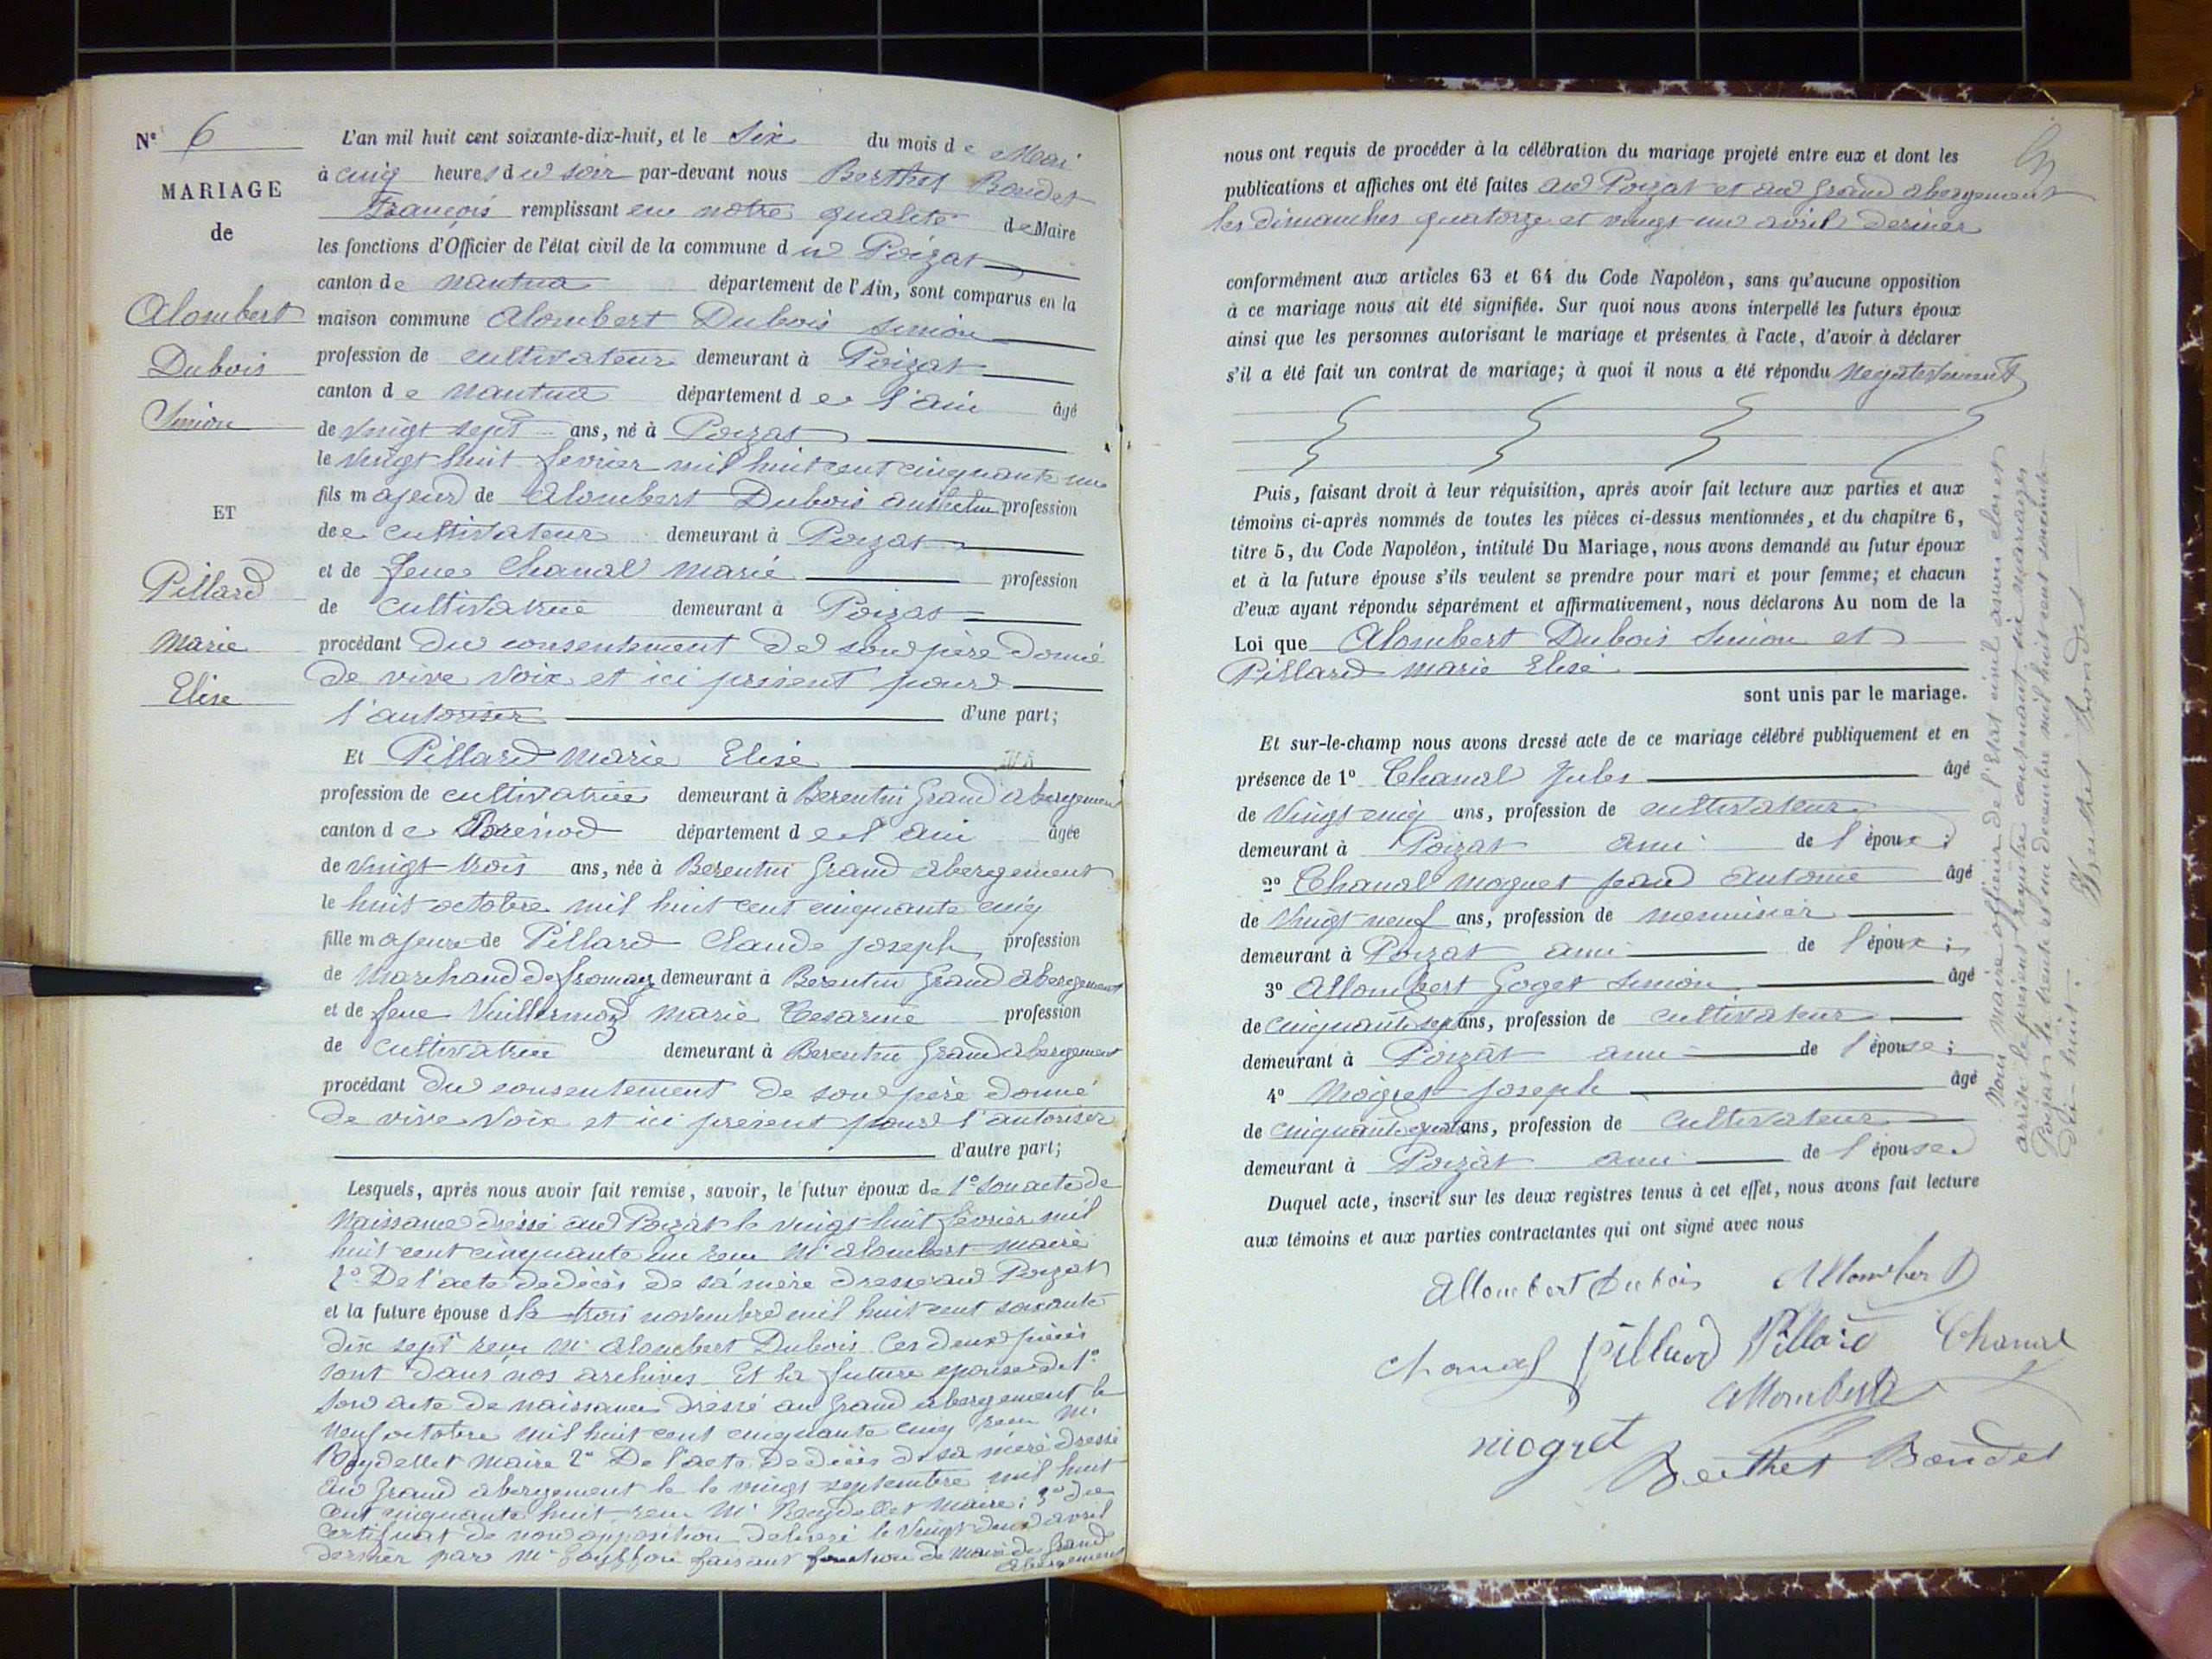 N° 6
MARIAGE
de
Alombert
Dubois
Simon
ET
Pillard
Marie
Elise
L'an mil huit cent soixante-dix-huit, et le Six du mois de Mai
à cinq heures du soir par-devant nous Berthet Bondet
François remplissant en notre qualité de Maire
les fonctions d'Officier de l'état civil de la commune du Poizat
canton de Nantua département de l'Ain, sont comparus en la
maison commune Alombert Dubois Simon
profession de cultivateur demeurant à Poizat
canton de Nantua département de l'ain âgé
de vingt sept ans, né à Poizat
le vingt huit fevrier mil huit cent cinquante un
fils majeur de Alombert Dubois Anthelme profession
de cultivateur demeurant à Poizat
et de feue Chanal Marie profession
de cultivatrice demeurant à Poizat
procédant du consentement de son père donné
de vive voix et ici présent pour
l'autoriser d'une part;
Et Pillard Marie Elise
profession de cultivatrice demeurant à Berentin Grand abergement
canton de Brenod département de l'ain âgée
de vingt trois ans, née à Berentin Grand abergement
le huit octobre mil huit cent cinquante cinq
fille majeure de Pillard Claude joseph profession
de Marchand de fromag demeurant à Berentin Grand abergement
et de feue Vuillermoz Marie Cesarine profession
de cultivatrice demeurant à Berentin Grand abergement
procédant du consentement de son père donné
de vive voix et ici présent pour l'autoriser
d'autre part;
Lesquels, après nous avoir fait remise, savoir, le futur époux de 1° son acte de
Naissance dressé au Poizat le vingt huit février mil
huit cent cinquante un reçu Mr Alombert Maire
2° De l'acte de décès de sa mère dressé au Poizat
et la future épouse d le trois novembre mil huit cent soixante
dix sept reçu Mr Alombert Dubois Ces deux pièces
sont dans nos archives Et la future epouse de 1°
son acte de naissance dressé au Grand abergement le
neuf octobre mil huit cent cinquante cinq reçu Mr
Reydellet Maire 2° De l'acte de décès de sa mère dressé
au Grand abergement le le vingt septembre mil huit
cent cinquante huit reçu Mr Reydellet Maire; 3° du
certificat de non opposition delivré le vingt deux avril
dernier par Mr faisant fonction de Maire du Grand
abergement
nous ont requis de procéder à la célébration du mariage projeté entre eux et dont les
publications et affiches ont été faites au Poizat et au Grand abergement
les dimanches quatorze et vingt un avril dernier
conformément aux articles 63 et 64 du Code Napoléon, sans qu'aucune opposition
à ce mariage nous ait été signifiée. Sur quoi nous avons interpellé les futurs époux
ainsi que les personnes autorisant le mariage et présentes à l'acte, d'avoir à déclarer
s'il a été fait un contrat de mariage; à quoi il nous a été répondu Negativement
Puis, faisant droit à leur réquisition, après avoir fait lecture aux parties et aux
témoins ci-après nommés de toutes les pièces ci-dessus mentionnées, et du chapitre 6,
titre 5, du Code Napoléon, intitulé Du Mariage, nous avons demandé au futur époux
et à la future épouse s'ils veulent se prendre pour mari et pour femme; et chacun
d'eux ayant répondu séparément et affirmativement, nous déclarons Au nom de la
Loi que Alombert Dubois Simon et
Pillard Marie Elise
sont unis par le mariage.
Et sur-le-champ nous avons dressé acte de ce mariage célébré publiquement et en
présence de 1° Chanal Jules âgé
de vingt cinq ans, profession de cultivateur
demeurant à Poizat ami de l'époux;
2° Chanal Moguet jean Antoine âgé
de vingt neuf ans, profession de menuisier
demeurant à Poizat ami de l'époux;
3° Allombert Goget Simon âgé
de cinquante sept ans, profession de cultivateur
demeurant à Poizat ami de l'épouse;
4° Niogret joseph âgé
de cinquante quatre ans, profession de cultivateur
demeurant à Poizat ami de l'épouse
Duquel acte, inscrit sur les deux registres tenus à cet effet, nous avons fait lecture
aux témoins et aux parties contractantes qui ont signé avec nous
Allombert Dubois Allombert
Chanal Pillard Pillard Chanal
Allombert
niogret Berthet Bondet
Nous Maire officier de l'Etat civil avons clos et
arrêté le présent registre contenant six mariages
Poizat le trente et un decembre mil huit cent soixante
dix-huit.
Berthet Bondet